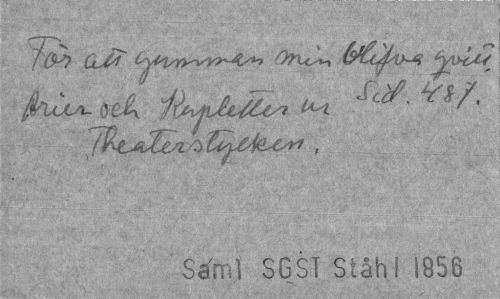 För att gumman min blifva qvitt.
Sid. 487.
Arier och Kupletter ur
Theaterstycken.
Saml SGST Ståhl 1856